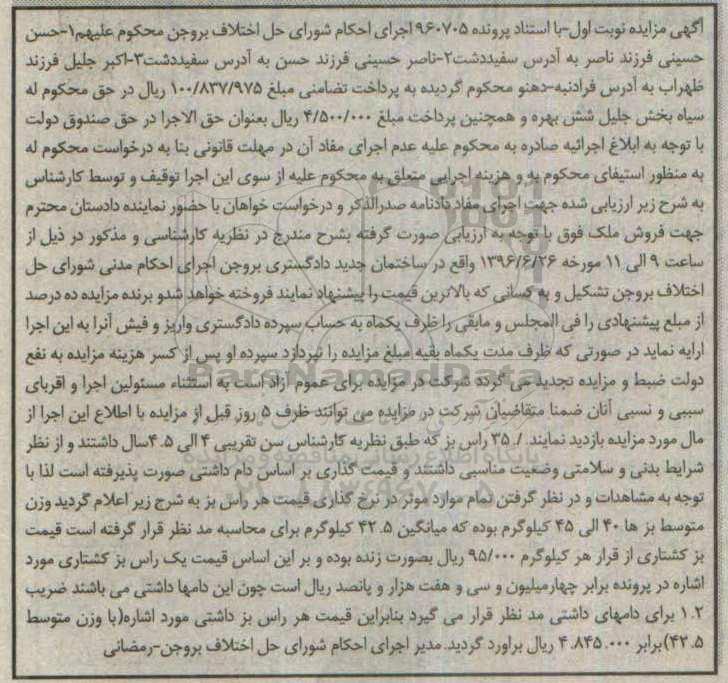 آگهی مزایده نوبت اول-با استناد پرونده ۹۶۰۷۰۵ اجرای احکام شورای حل اختلاف بروجن محکوم علیهم۱-حسن
حسینی فرزند ناصر به آدرس سفیددشت۲-ناصر حسینی فرزند حسن به آدرس سفیددشت۳-اکبر جلیل فرزند
ظهراب به آدرس فرادنبه-دهنو محکوم گردیده به پرداخت تضامنی مبلغ ۱۰۰/۸۳۷/۹۷۵ ریال در حق محکوم له
سیاه بخش جلیل شش بهره و همچنین پرداخت مبلغ ۴/۵۰۰/۰۰۰ ریال بعنوان حق الاجرا در حق صندوق دولت
با توجه به ابلاغ اجرائیه صادره به محکوم علیه عدم اجرای مفاد آن در مهلت قانونی بنا به درخواست محکوم له
به منظور استیفای محکوم به و هزینه اجرایی متعلق به محکوم علیه از سوی این اجرا توقیف و توسط کارشناس
به شرح زیر ارزیابی شده جهت اجرای مفاد دادنامه صدرالذکر و درخواست خواهان با حضور نماینده دادستان محترم
جهت فروش ملک فوق با توجه به ارزیابی صورت گرفته بشرح مندرج در نظریه کارشناسی و مذکور در ذیل از
ساعت ۹ الی ۱۱ مورخه ۱۳۹۶/۶/۲۶ واقع در ساختمان جدید دادگستری بروجن اجرای احکام مدنی شورای حل
اختلاف بروجن تشکیل و به کسانی که بالاترین قیمت را پیشنهاد نمایند فروخته خواهد شدو برنده مزایده ده درصد
از مبلغ پیشنهادی را فی المجلس و مابقی را ظرف یکماه به حساب سپرده دادگستری واریز و فیش آنرا به این اجرا
ارایه نماید در صورتی که ظرف مدت یکماه بقیه مبلغ مزایده را نپردازد سپرده او پس از کسر هزینه مزایده به نفع
دولت ضبط و مزایده تجدید می گردد شرکت در مزایده برای عموم آزاد است به استثناء مسئولین اجرا و اقربای
سببی و نسبی آنان ضمنا متقاضیان شرکت در مزایده می توانند ظرف ۵ روز قبل از مزایده با اطلاع این اجرا از
مال مورد مزایده بازدید نمایند ./. ۳۵ راس بز که طبق نظریه کارشناس سن تقریبی ۴ الی ۴.۵سال داشتند و از نظر
شرایط بدنی و سلامتی وضعیت مناسبی داشتند و قیمت گذاری بر اساس دام داشتی صورت پذیرفته است لذا با
توجه به مشاهدات و در نظر گرفتن تمام موارد موثر در نرخ گذاری قیمت هر راس بز به شرح زیر اعلام گردید وزن
متوسط بز ها ۴۰ الی ۴۵ کیلوگرم بوده که میانگین ۴۲.۵ کیلوگرم برای محاسبه مد نظر قرار گرفته است قیمت
بز کشتاری از قرار هر کیلوگرم ۹۵/۰۰۰ ریال بصورت زنده بوده و بر این اساس قیمت یک راس بز کشتاری مورد
اشاره در پرونده برابر چهارمیلیون و سی و هفت هزار و پانصد ریال است چون این دامها داشتی می باشند ضریب
۱.۲ برای دامهای داشتی مد نظر قرار می گیرد بنابراین قیمت هر راس بز داشتی مورد اشاره(با وزن متوسط
۴۲.۵)برابر ۴.۸۴۵.۰۰۰ ریال براورد گردید.مدیر اجرای احکام شورای حل اختلاف بروجن-رمضانی
ParsNamadData